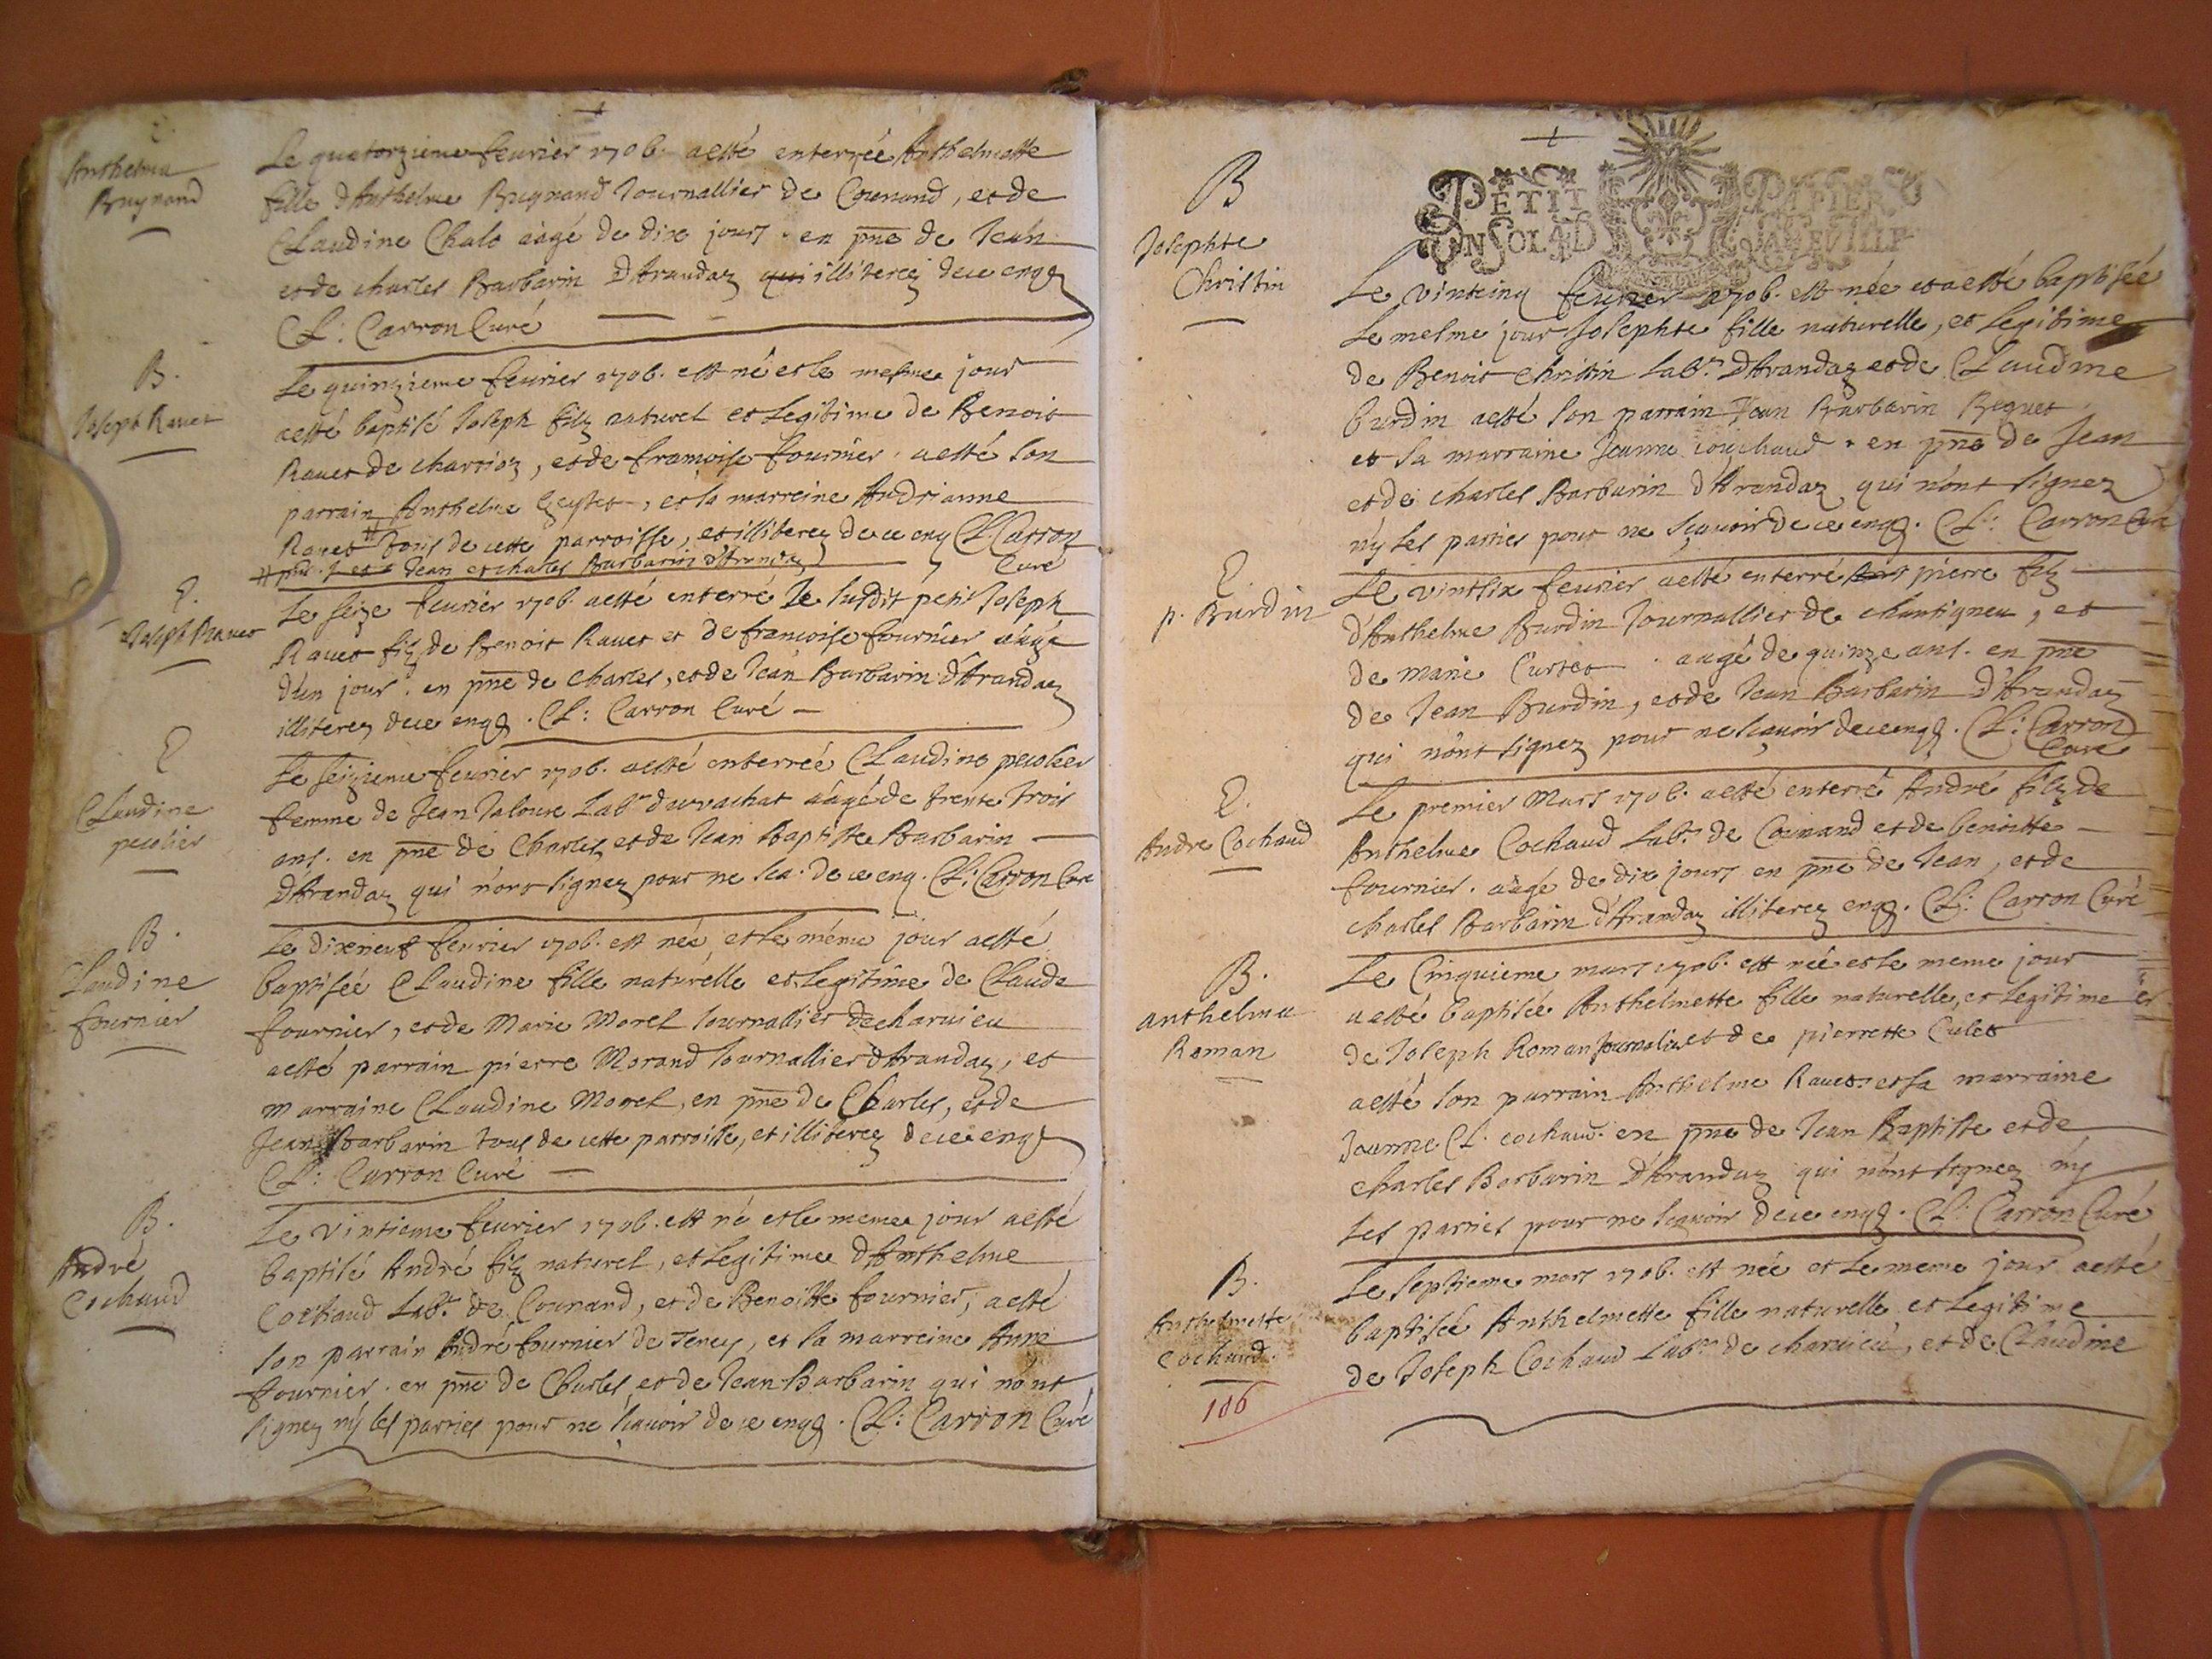 E.
Anthelma
Brugnand
Le quatorzieme feurier 1706. a esté enterrée Anthelmette
fille d'Anthelme Brugnand Journallier de Counand, et de
Claudine Chalo aâgé de dix jours. en pñe de Jean
et de charles Barbarin d'Arandaz qui illiterez de ce enqz
Cl: Carron Curé
B.
Joseph Rauet
Le quinzieme feurier 1706. est né et le mesme jour
a esté baptisé Joseph filz naturel et legitime de Benoit
Rauet de charrioz, et de francoise fournier. a esté son
parrain Anthelme, et sa marreine Andrianne
Rauet # tous de cette parroisse, et illiterez de ce enq Cl. Carron
Curé
# pñs. Jean et charles Barbarin d'Arandaz
E.
Joseph Rauet
Le seize feurier 1706. a esté enterré le susdit petit Joseph
Rauet filz de Benoit Rauet et de francoise fournier aâgé
d'un jour. en pñe de charles, et de Jean Barbarin d'Arandaz
illiterez de ce enqz. Cl: Carron Curé
E
Claudine
pecolier
Le seizieme feurier 1706. a esté enterrée Claudine pecolier
femme de Jean Laboure. aâgé de trente trois
ans. en pñe de Charles et de Jean Baptiste Barbarin
d'Arandaz qui n'ont signez pour ne sca. de ce enq. Cl: Carron Curé
B.
Claudine
fournier
Le dixneuf feurier 1706. est née et le méme jour a esté
baptisée Claudine fille naturelle et legitime de Claude
fournier, et de Marie Morel Journallier de charuieu
a esté parrain pierre Morand Journallier d'Arandaz, et
marraine Claudine Morel, en pñe de Charles, et de
Jean Barbarin tous de cette parroisse, et illiterez de ce enqz
Cl: Carron Curé
B.
André
Cochaud
Le vintieme feurier 1706. est né et le meme jour a esté
baptisé André filz naturel, et legitime d'Anthelme
Cochaud Labr. de Counand, et de Benoitte fournier, a esté
son parrain André fournier de Tency, et sa marreine Anne
fournier. en pñe de Charles et de Jean Barbarin qui n'ont
signez ny les parties pour ne scauoir de ce enqz. Cl: Carron Curé
PETIT PAPIER
UN SOL 4 D LA FEUILLE
B
Josephte
Christin
Le vintcinq feurier 1706. est née et a esté baptisée
le mesme jour Josephte fille naturelle, et legitime
de Benoit Christin Labr. d'Arandaz et de Claudine
Burdin a esté son parrain Jean Barbarin Beguet
et sa marraine Jeanne couchaud. en pñe de Jean
et de charles Barbarin d'Arandaz qui n'ont signez
ny les parties pour ne scauoir de ce enqz. Cl: Carron Curé
E
p. Burdin
Le vintsix feurier a esté enterré pierre filz
d'Anthelme Burdin Journallier de chantigneu, et
de marie Curtet. aagé de quinze ans. en pñe
de Jean Burdin, et de Jean Barbarin d'Arandaz
qui n'ont signez pour ne scauoir de ce enqz. Cl: Carron
Curé
E.
Andre Cochaud
Le premier Mars 1706. a esté enterré André filz de
Anthelme Cochaud Labr. de Counand et de benoitte
fournier. aâgé de dix jours en pñe de Jean, et de
charles Barbarin d'Arandaz illiterez enqz. Cl: Carron Curé
B.
anthelma
Roman
Le Cinquieme mars 1706. est née et le meme jour
a esté baptisée Anthelmette fille naturelle, et legitime
de Joseph Roman Journalier et de pierrette Culet
a esté son parrain Anthelme Rauet. et sa marraine
Jeanne Cl. cochaud. en pñe de Jean Baptiste et de
charles Barbarin d'Arandaz qui n'ont signez ny
les parties pour ne scauoir de ce enqz. Cl: Carron Curé
B.
Anthelmette
Cochaud.
Le septieme mars 1706. est née et le meme jour a esté
baptisée Anthelmette fille naturelle et legitime
de Joseph Cochaud Labr. de charuieu, et de Claudine
106